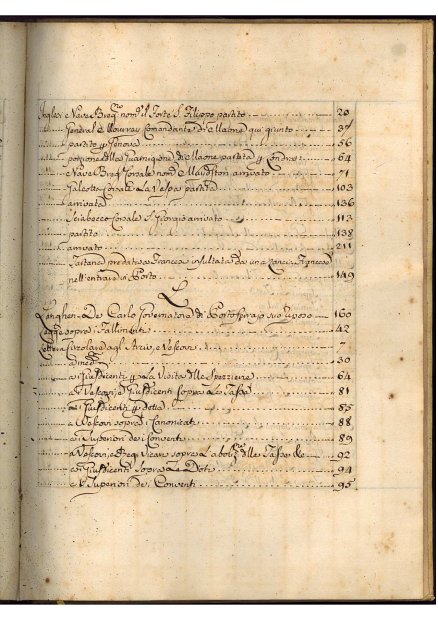 Inglesi e Nave Breq. nom. il Forte S. Filippo partito 20
General Murray Comandante di Maone qui giunto 3
partito p Genova 56
porzione della Guarnigione di Maone partita p Londra 64
Nave Breq. Corsale nom. arrivato 71
Galeotta Corsale La Vespa partita 103
arrivata 136
Sciabecco Corsale S. Giorgio arrivato 113
partito 138
arrivato 211
Tartana predatrice Francese insultata da una
nell'entrare in Porto 149
L
De Carlo Governatore di Portoferrajo suo 160
Legge sopra i Fallimenti 42
Lettera Circolare agl' Arciv. e Vescovi 7
30
ai Giusdicenti p la Visita delle Spezierie 64
a Vescovi, e Giusdicenti sopra Le Tasse 81
ai Giusdicenti p detta 85
a Vescovi sopra i Canonicati 88
a Superiori de Conventi 89
a Vescovi, e Reg. Vicari sopra L'aboliz. delle Tasse 92
ai Giusdicenti sopra Le Doti 94
a Superiori dei Conventi 95